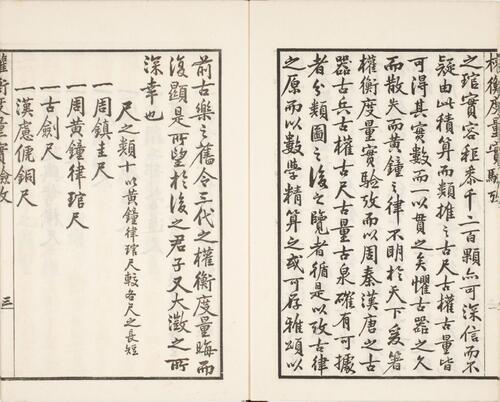 權衡度量實驗攷
之琯實容秬黍千二百顆亦可深信而不
疑由此積算而類推之古尺古權古量皆
可得其實數而一以貫之矣懼古器之久
而散失而黃鐘之律不明於天下爰箸
權衡度量實驗攷而以周秦漢唐之古
器古兵古權古尺古量古泉確有可據
者分類圖之後之覽者循是以攷古律
之原而以數學精算之或可存雅頌以
前古樂之舊令三代之權衡度量晦而
復顯是所望於後之君子又大澂之所
深幸也
尺之類十以黃鐘律琯尺較各尺之長短
一周鎮圭尺
一周黃鐘律琯尺
一古劍尺
一漢慮俿銅尺
權衡度量實驗攷
三